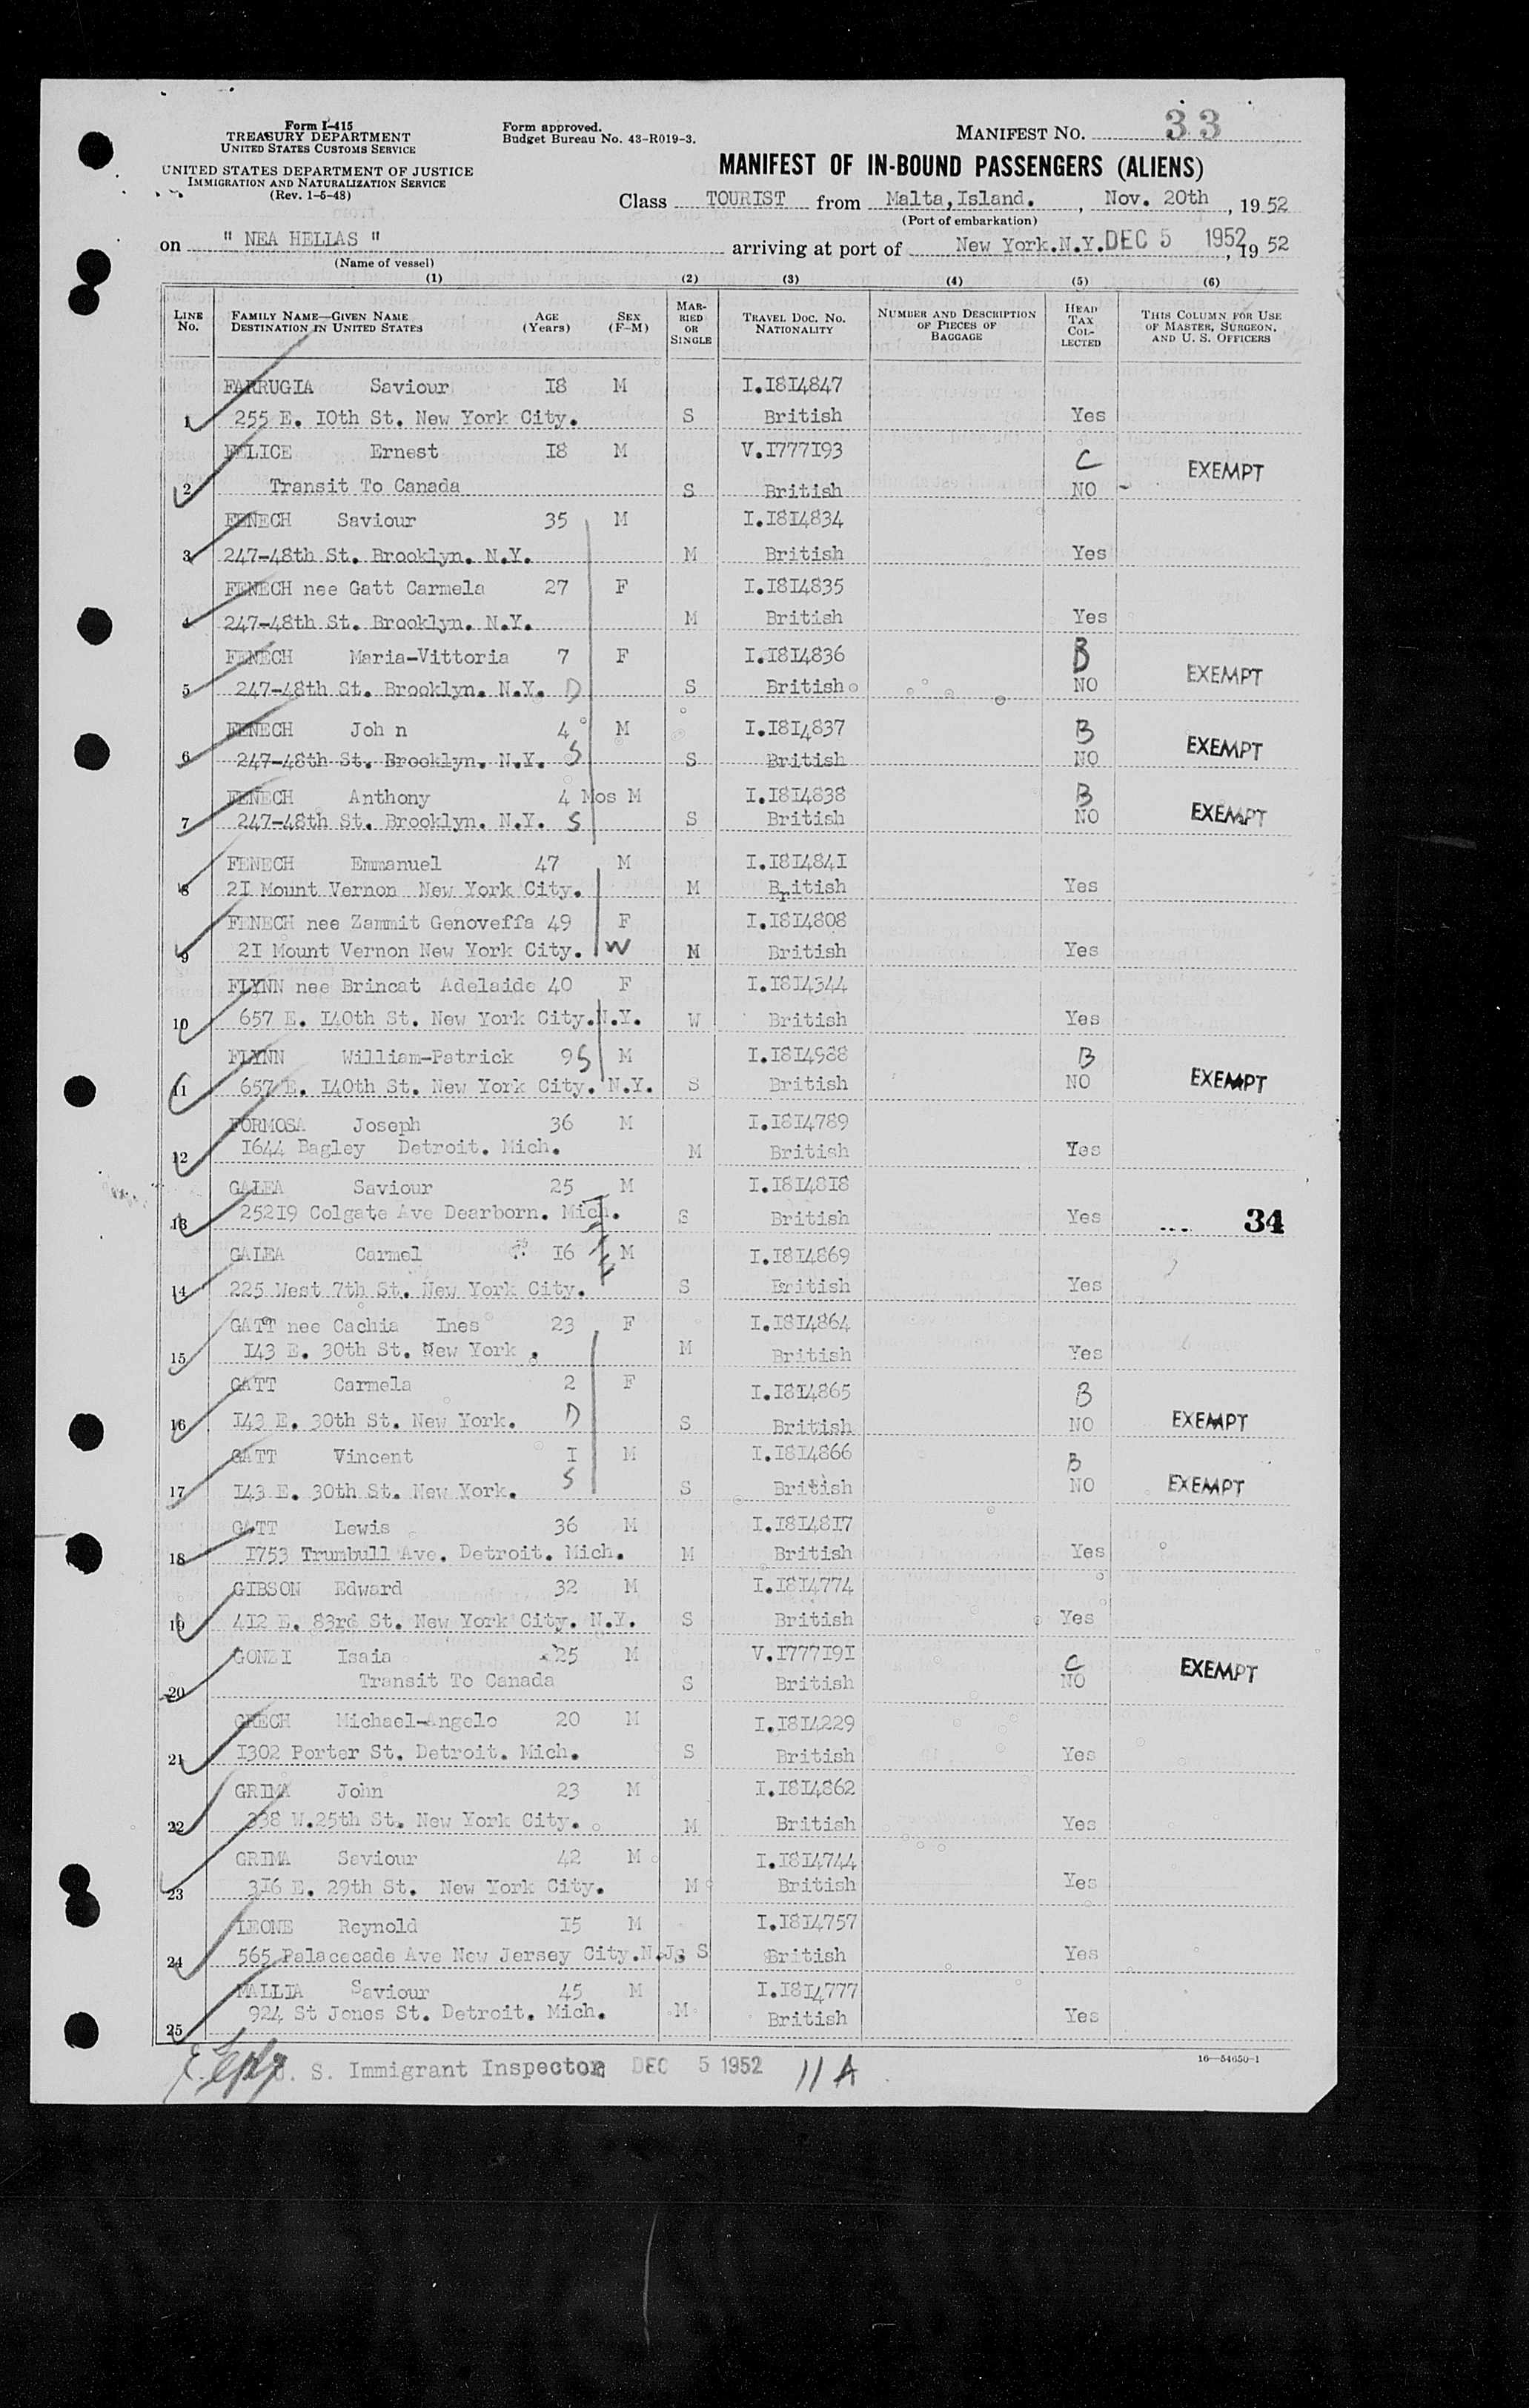 Form I-415
TREASURY DEPARTMENT
UNITED STATES CUSTOMS SERVICE
UNITED STATES DEPARTMENT OF JUSTICE
IMMIGRATION AND NATURALIZATION SERVICE
(Rev. 1-5-48)
Form approved.
Budget Bureau No. 43-R019-3.
MANIFEST NO. 33
MANIFEST OF IN-BOUND PASSENGERS (ALIENS)
Class TOURIST from Malta,Island. , Nov. 20th , 19 52
(Port of embarkation)
on " NEA HELLAS " arriving at port of New York.N.Y. DEC 5 1952 , 19 52
(Name of vessel)
(1) (2) (3) (4) (5) (6)
LINE No. FAMILY NAME—GIVEN NAME DESTINATION IN UNITED STATES AGE (Years) SEX (F-M) MARRIED OR SINGLE TRAVEL DOC. NO. NATIONALITY NUMBER AND DESCRIPTION OF PIECES OF BAGGAGE HEAD TAX COLLECTED THIS COLUMN FOR USE OF MASTER, SURGEON, AND U. S. OFFICERS
FARRUGIA Saviour I8 M I.I8I4847
1 255 E. I0th St. New York City. S British Yes
FELICE Ernest I8 M V.I777I93 C EXEMPT
2 Transit To Canada S British NO -
FENECH Saviour 35 M I.I8I4834
3 247-48th St. Brooklyn. N.Y. M British Yes
FENECH nee Gatt Carmela 27 F I.I8I4835
4 247-48th St. Brooklyn. N.Y. M British Yes
FENECH Maria-Vittoria 7 F I.I8I4836 B EXEMPT
5 247-48th St. Brooklyn. N.Y. D S British NO
FENECH Joh n 4 M I.I8I4837 B EXEMPT
6 247-48th St. Brooklyn. N.Y. S S British NO
FENECH Anthony 4 Mos M I.I8I4838 B EXEMPT
7 247-48th St. Brooklyn. N.Y. S S British NO
FENECH Emmanuel 47 M I.I8I484I
8 2I Mount Vernon New York City. M British Yes
FENECH nee Zammit Genoveffa 49 F I.I8I4808
9 2I Mount Vernon New York City. W M British Yes
FLYNN nee Brincat Adelaide 40 F I.I8I4344
10 657 E. I40th St. New York City.N.Y. W British Yes
FLYNN William-Patrick 9 S M I.I8I4988 B
11 657 E. I40th St. New York City. N.Y. S British NO EXEMPT
FORMOSA Joseph 36 M I.I8I4789
12 I644 Bagley Detroit. Mich. M British Yes
GALEA Saviour 25 M I.I8I48I8
13 252I9 Colgate Ave Dearborn. Mich. S British Yes 34
GALEA Carmel I6 M I.I8I4869
14 225 West 7th St. New York City. S British Yes
GATT nee Cachia Ines 23 F I.I8I4864
15 I43 E. 30th St. New York . M British Yes
GATT Carmela 2 F I.I8I4865 B
16 I43 E. 30th St. New York. D S British NO EXEMPT
GATT Vincent I M I.I8I4866 B
17 I43 E. 30th St. New York. S S British NO EXEMPT
GATT Lewis 36 M I.I8I48I7
18 I753 Trumbull Ave. Detroit. Mich. M British Yes
GIBSON Edward 32 M I.I8I4774
19 4I2 E. 83rd St. New York City. N.Y. S British Yes
Isaia 25 M V.I777I9I C EXEMPT
20 Transit To Canada S British NO
GRECH Michael-Angelo 20 M I.I8I4229
21 I302 Porter St. Detroit. Mich. S British Yes
GRIMA John 23 M I.I8I4862
22 338 W.25th St. New York City. M British Yes
GRIMA Saviour 42 M I.I8I4744
23 3I6 E. 29th St. New York City. M British Yes
LEONE Reynold I5 M I.I8I4757
24 565 Palacecade Ave New Jersey City.N.J. S British Yes
MALLIA Saviour 45 M I.I8I4777
25 924 St Jones St. Detroit. Mich. M British Yes
U. S. Immigrant Inspector DEC 5 1952 11 A
16—54650-1